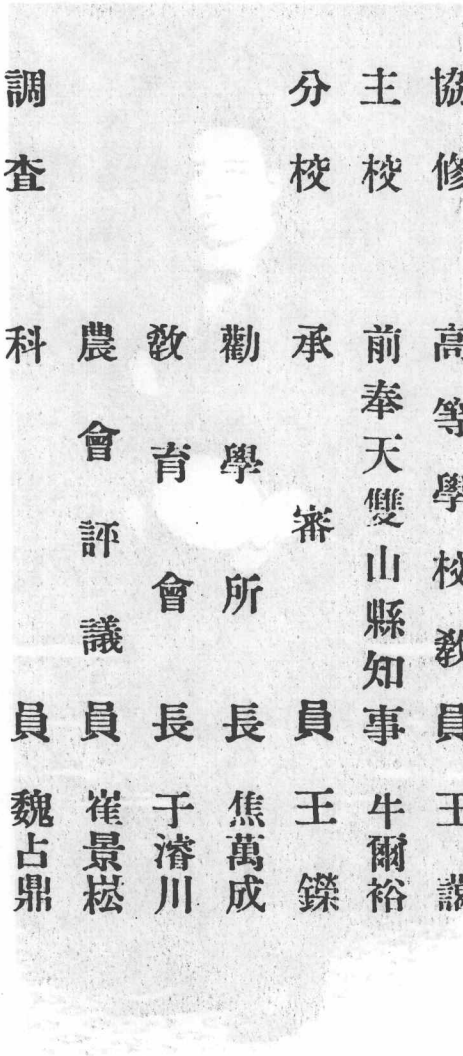 協修　高等學校教員　王
主校　前奉天雙山縣知事　牛爾裕
分校　承審員　王鑠
勸學所長　焦萬成
教育會長　于濬川
農會評議員　崔景崧
調查　科員　魏占鼎